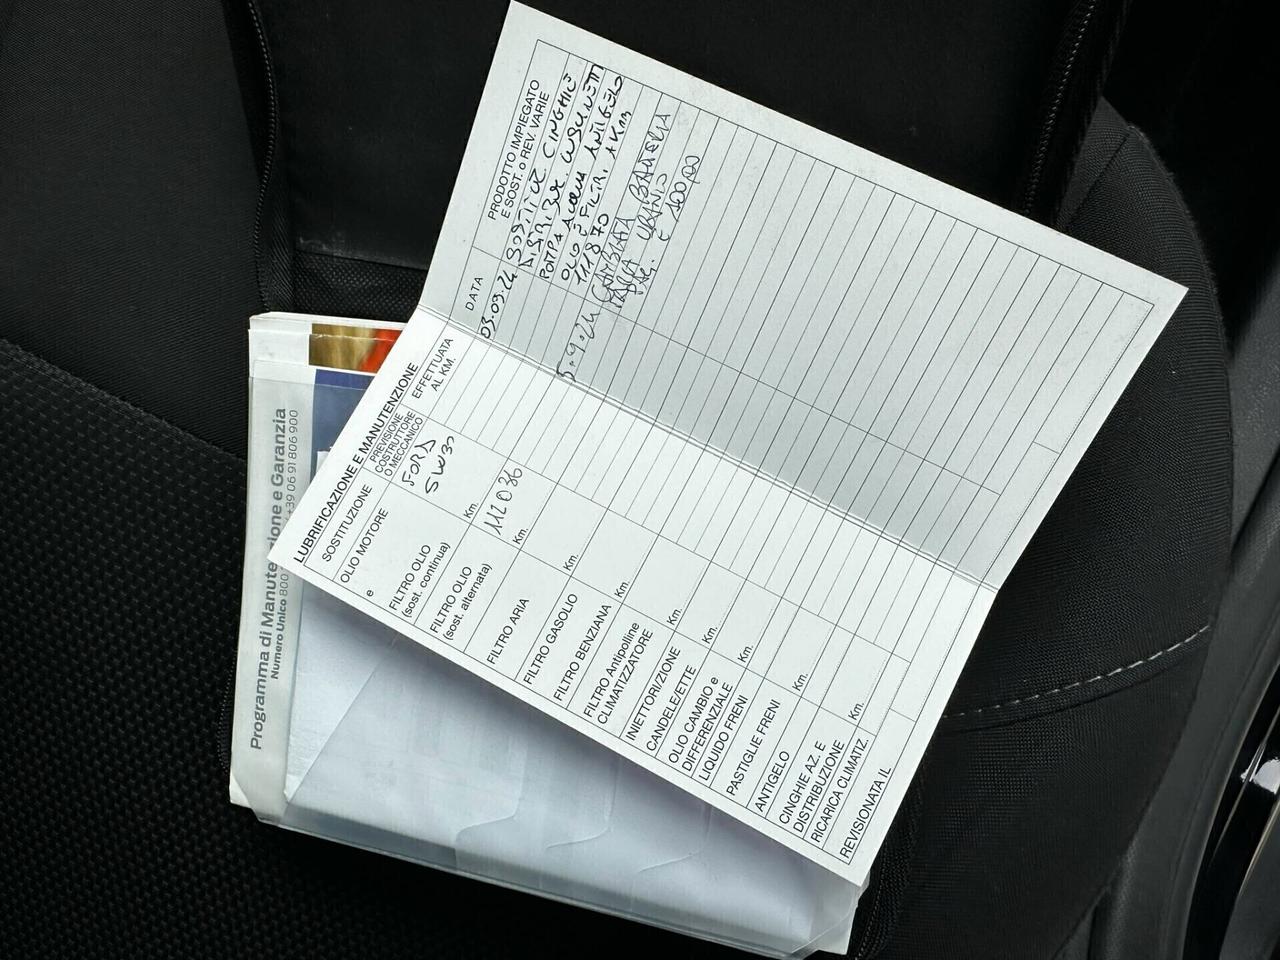 PRODOTTO IMPIEGATO
E SOST. o REV. VARIE
DATA
03.09.24 SOSTITUZ CINGHIE
POMPA ACQUA
OLIO E FILTRI ANTIGELO
111870 A KM
5.9.24 CAMBIATA BATTERIA
PAG. € 100,00
LUBRIFICAZIONE E MANUTENZIONE
SOSTITUZIONE
PREVISIONE
COSTRUTTORE
O MECCANICO
EFFETTUATA
AL KM.
OLIO MOTORE
FORD
5W30
e
FILTRO OLIO
(sost. continua)
Km.
112036
FILTRO OLIO
(sost. alternata)
Km.
FILTRO ARIA
Km.
FILTRO GASOLIO
FILTRO BENZIANA
Km.
FILTRO Antipolline
CLIMATIZZATORE
Km.
INIETTORI/ZIONE
CANDELE/ETTE
Km.
OLIO CAMBIO e
DIFFERENZIALE
Km.
LIQUIDO FRENI
PASTIGLIE FRENI
Km.
ANTIGELO
CINGHIE AZ. E
DISTRIBUZIONE
Km.
RICARICA CLIMATIZ.
REVISIONATA IL
Programma di Manutenzione e Garanzia
Numero Unico 800
+39 06 91 806 900